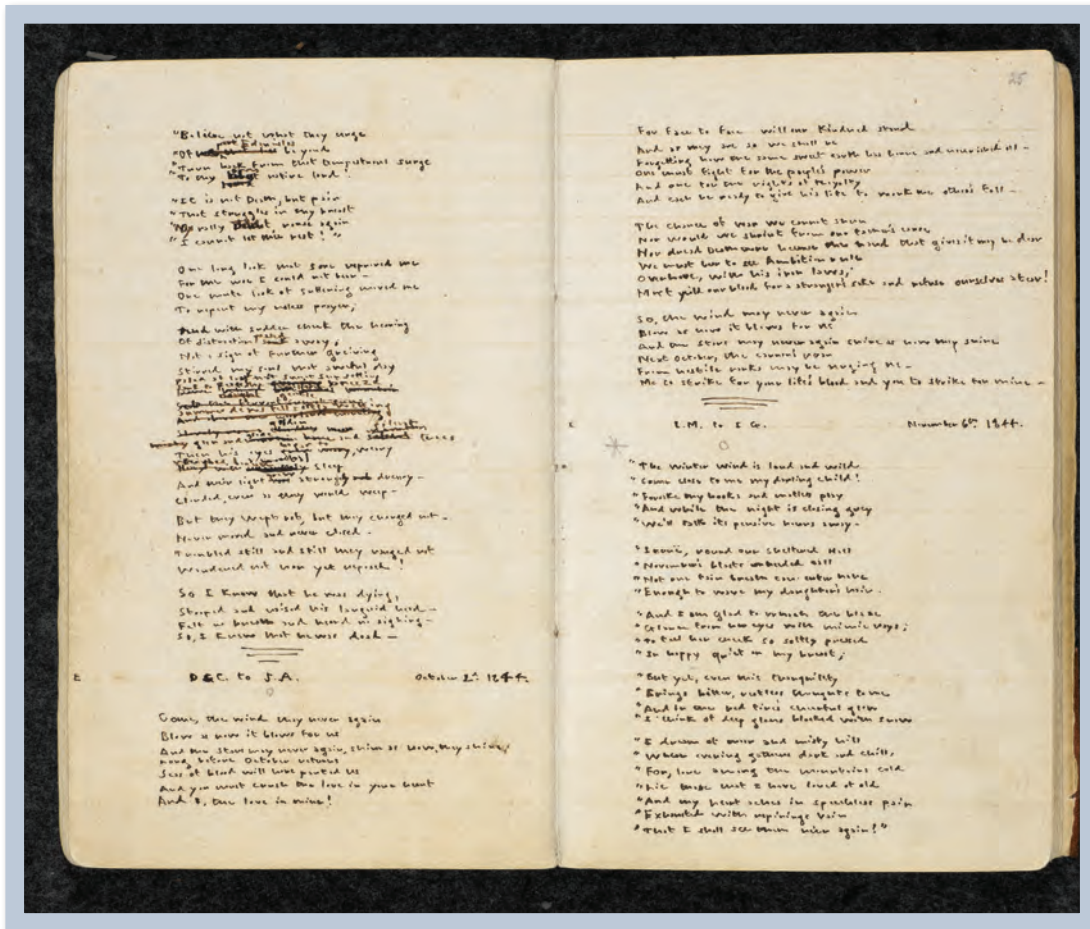 "Believe not what they urge
"Of beyond
"Turn back from that tempestuous surge
"To thy native land!
"It is not Death, but pain
"That struggles in thy breast
"Nay rally, rouse again
"I cannot let thee rest!"
One long look that sore reproved me
For the woe I could not bear —
One mute look of suffering moved me
To repent my useless prayer;
And with sudden check the heaving
Of distraction passed away;
Not a sign of further grieving
Stirred my soul that awful day
Paled at last the sweet sun setting
Sunk to peace the
Summer dews fell softly wetting
glen and and silent trees
Then his eyes began to weary
sleep
And their light grew strangely dreary
Clouded, even as they would weep —
But they wept not, but they changed not —
Never moved and never closed —
Troubled still and still they ranged not
Wandered not nor yet reposed!
So I knew that he was dying,
Stooped and raised his languid head —
Felt no breath and heard no sighing —
So, I knew that he was dead —
E
D.G.C. to J.A.
October 2d. 1844.
Come, the wind may never again
Blow as now it blows for us
And the stars may never again, shine as now they shine;
Long before October returns
Seas of blood will have parted us
And you must crush the love in your heart
And I, the love in mine!
25
For face to face will our Kindred stand
And as they are so we shall be
Forgetting how the same sweet earth has borne and nourished all —
One must fight for the people's power
And one for the rights of Royalty
And each be ready to give his life to work the other's fall —
The chance of war we cannot shun
Nor would we shrink from our father's cause
Nor dread Death more because the hand that gives it may be dear
We must bear to see Ambition rule
Over love, with his iron laws;
Must yield our blood for a stranger's sake and refuse ourselves a tear!
So, the wind may never again
Blow as now it blows for us
And the stars may never again shine as now they shine
Next October, the cannon's roar
From hostile ranks may be urging us —
Me to strike for your life's blood and you to strike for mine —
E.
E.M. to E.G.
November 6th 1844.
"The winter wind is loud and wild
"Come close to me my darling child!
"Forsake thy books and mateless play
"And while the night is closing grey
"We'll talk its pensive hours away —
"Iernë, round our sheltered Hall
"November's blasts unheeded call
"Not one faint breath can enter here
"Enough to wave my daughter's hair
"And I am glad to watch the blaze
"Glance from her eyes with mimic rays;
"To feel her cheek so softly pressed
"In happy quiet on my breast;
"But yet, even this tranquillity
"Brings bitter, restless thoughts to me
"And in the red fire's cheerful glow
"I think of deep glens blocked with snow
"I dream of moor and misty hill
"Where evening gathers dark and chill,
"For, lone among the mountains cold
"Lie those that I have loved of old
"And my heart aches in speechless pain
"Exhausted with repinings vain
"That I shall see them ne'er again!"